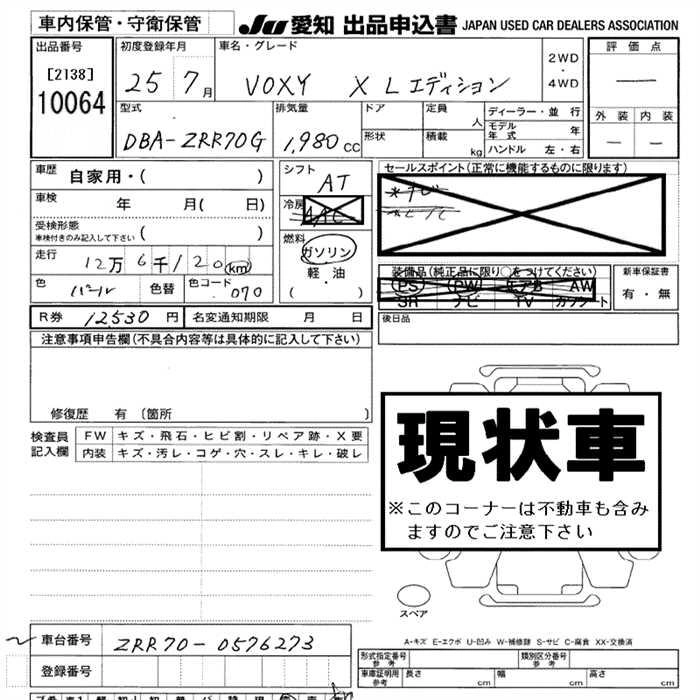 車内保管・守衛保管 JU 愛知 出品申込書 JAPAN USED CAR DEALERS ASSOCIATION
出品番号 初度登録年月 車名・グレード 評価点
[2138] 25 7月 VOXY X Lエディション 2WD・4WD —
10064
型式 排気量 ドア 定員 人 ディーラー・並行 外装 内装
モデル年式 年
DBA-ZRR70G 1,980cc 形状 積載 kg ハンドル 左・右 — —
車歴 自家用・( )
シフト AT
セールスポイント(正常に機能するものに限ります)
車検 年 月( 日)
冷房 A/C
*ナビ
受検形態
車検付きのみ記入して下さい ( )
燃料 ガソリン
軽・油
( ・ )
走行 12万6千120km
装備品(純正品に限り○をつけてください)
新車保証書
PS PW エアB AW
SR ナビ TV カワシート
有・無
色 パール 色替 色コード 070
R券 12530円 名変通知期限 月 日
後日品
注意事項申告欄(不具合内容等は具体的に記入して下さい)
修復歴 有 〔箇所 〕
検査員記入欄
FW キズ・飛石・ヒビ割・リペア跡・X要
内装 キズ・汚レ・コゲ・穴・スレ・キレ・破レ
現状車
※このコーナーは不動車も含み
ますのでご注意下さい
スペア
A-キズ E-エクボ U-凹み W-補修跡 S-サビ C-腐食 XX-交換済
車台番号 ZRR70-0576273
登録番号
形式指定番号 参考 類別区分番号 参考
車庫証明用 参考 長さ cm 幅 cm 高さ cm